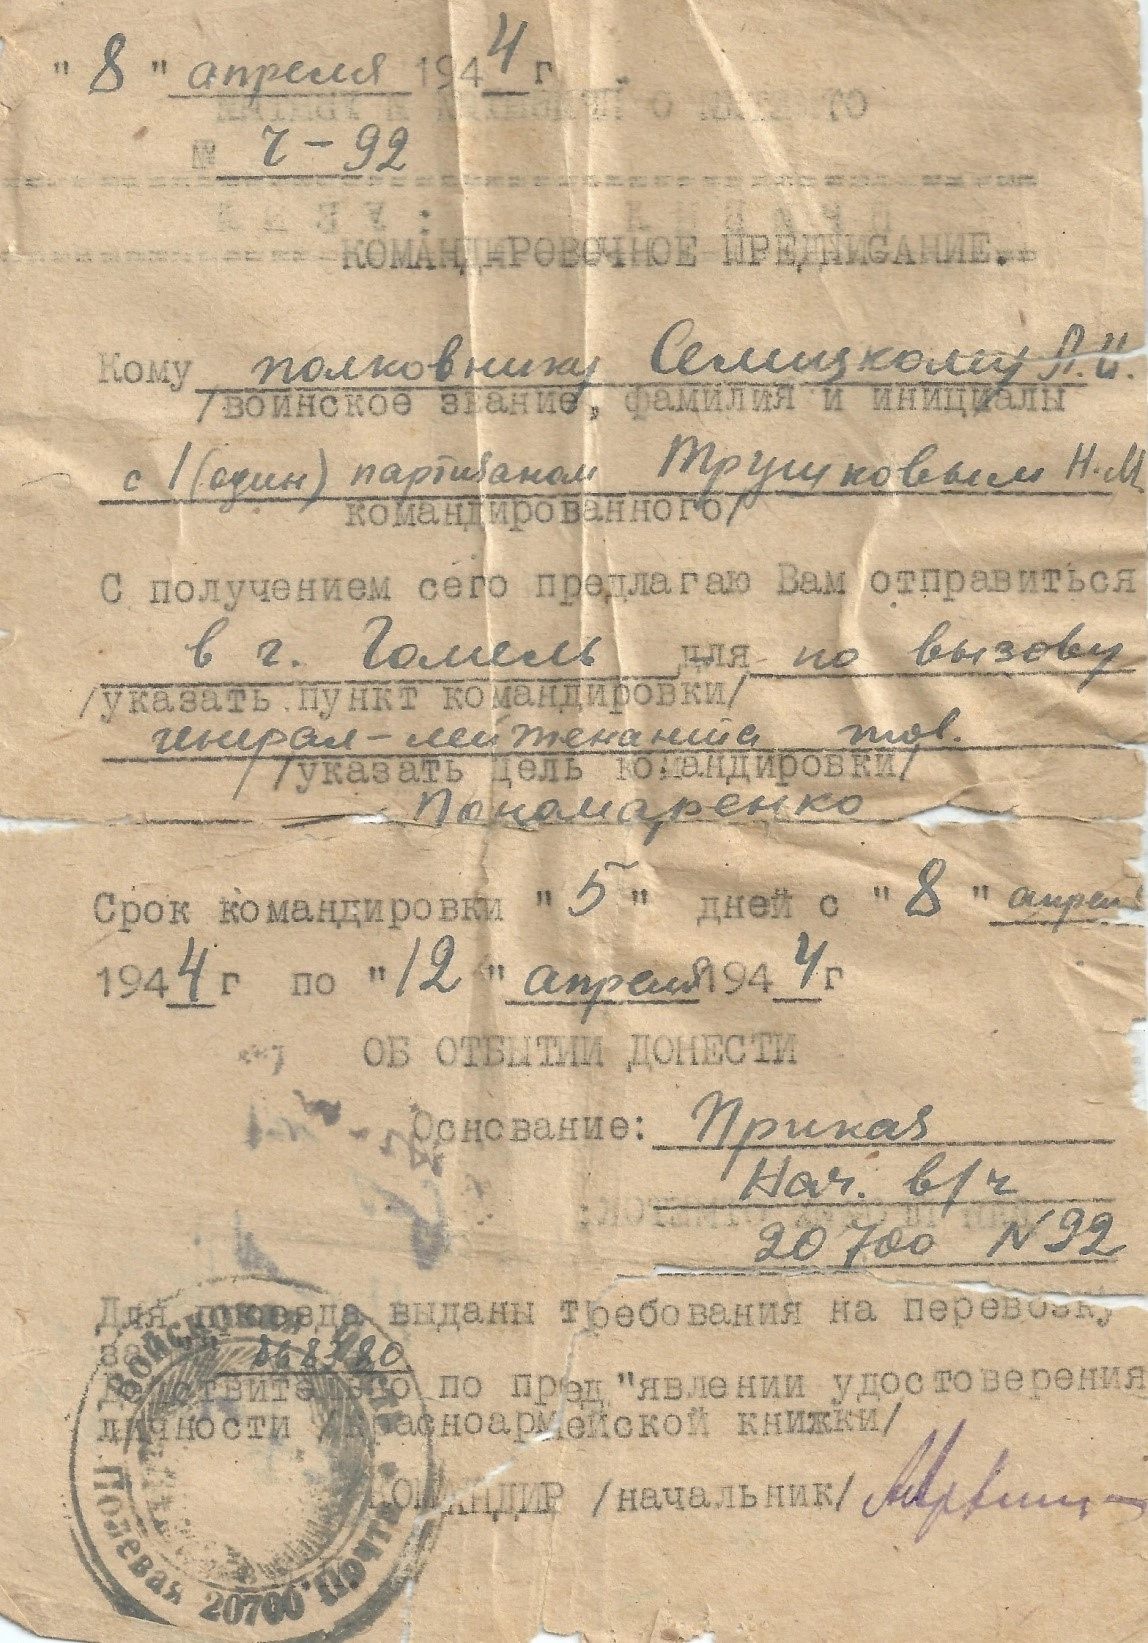 "8" апреля 1944 г.
№ Ч-92
КОМАНДИРОВОЧНОЕ ПРЕДПИСАНИЕ.
Кому полковнику Селицкому Л.И.
/воинское звание, фамилия и инициалы
с 1 (один) партизаном Трушковым Н.М
командированного/
С получением сего предлагаю Вам отправиться
в г. Гомель для по вызову
/указать пункт командировки/
генерал-лейтенанта тов.
/указать цель командировки/
Пономаренко
Срок командировки "5" дней с "8" апреля
1944 г по "12" апреля 1944 г
ОБ ОТБЫТИИ ДОНЕСТИ
Основание: Приказ
Нач. в/ч
20700 N 92
Для проезда выданы требования на перевозку
за
Действительно по пред"явлении удостоверения
личности /красноармейской книжки/
КОМАНДИР /начальник/
Войсковая часть
Полевая почта 20700